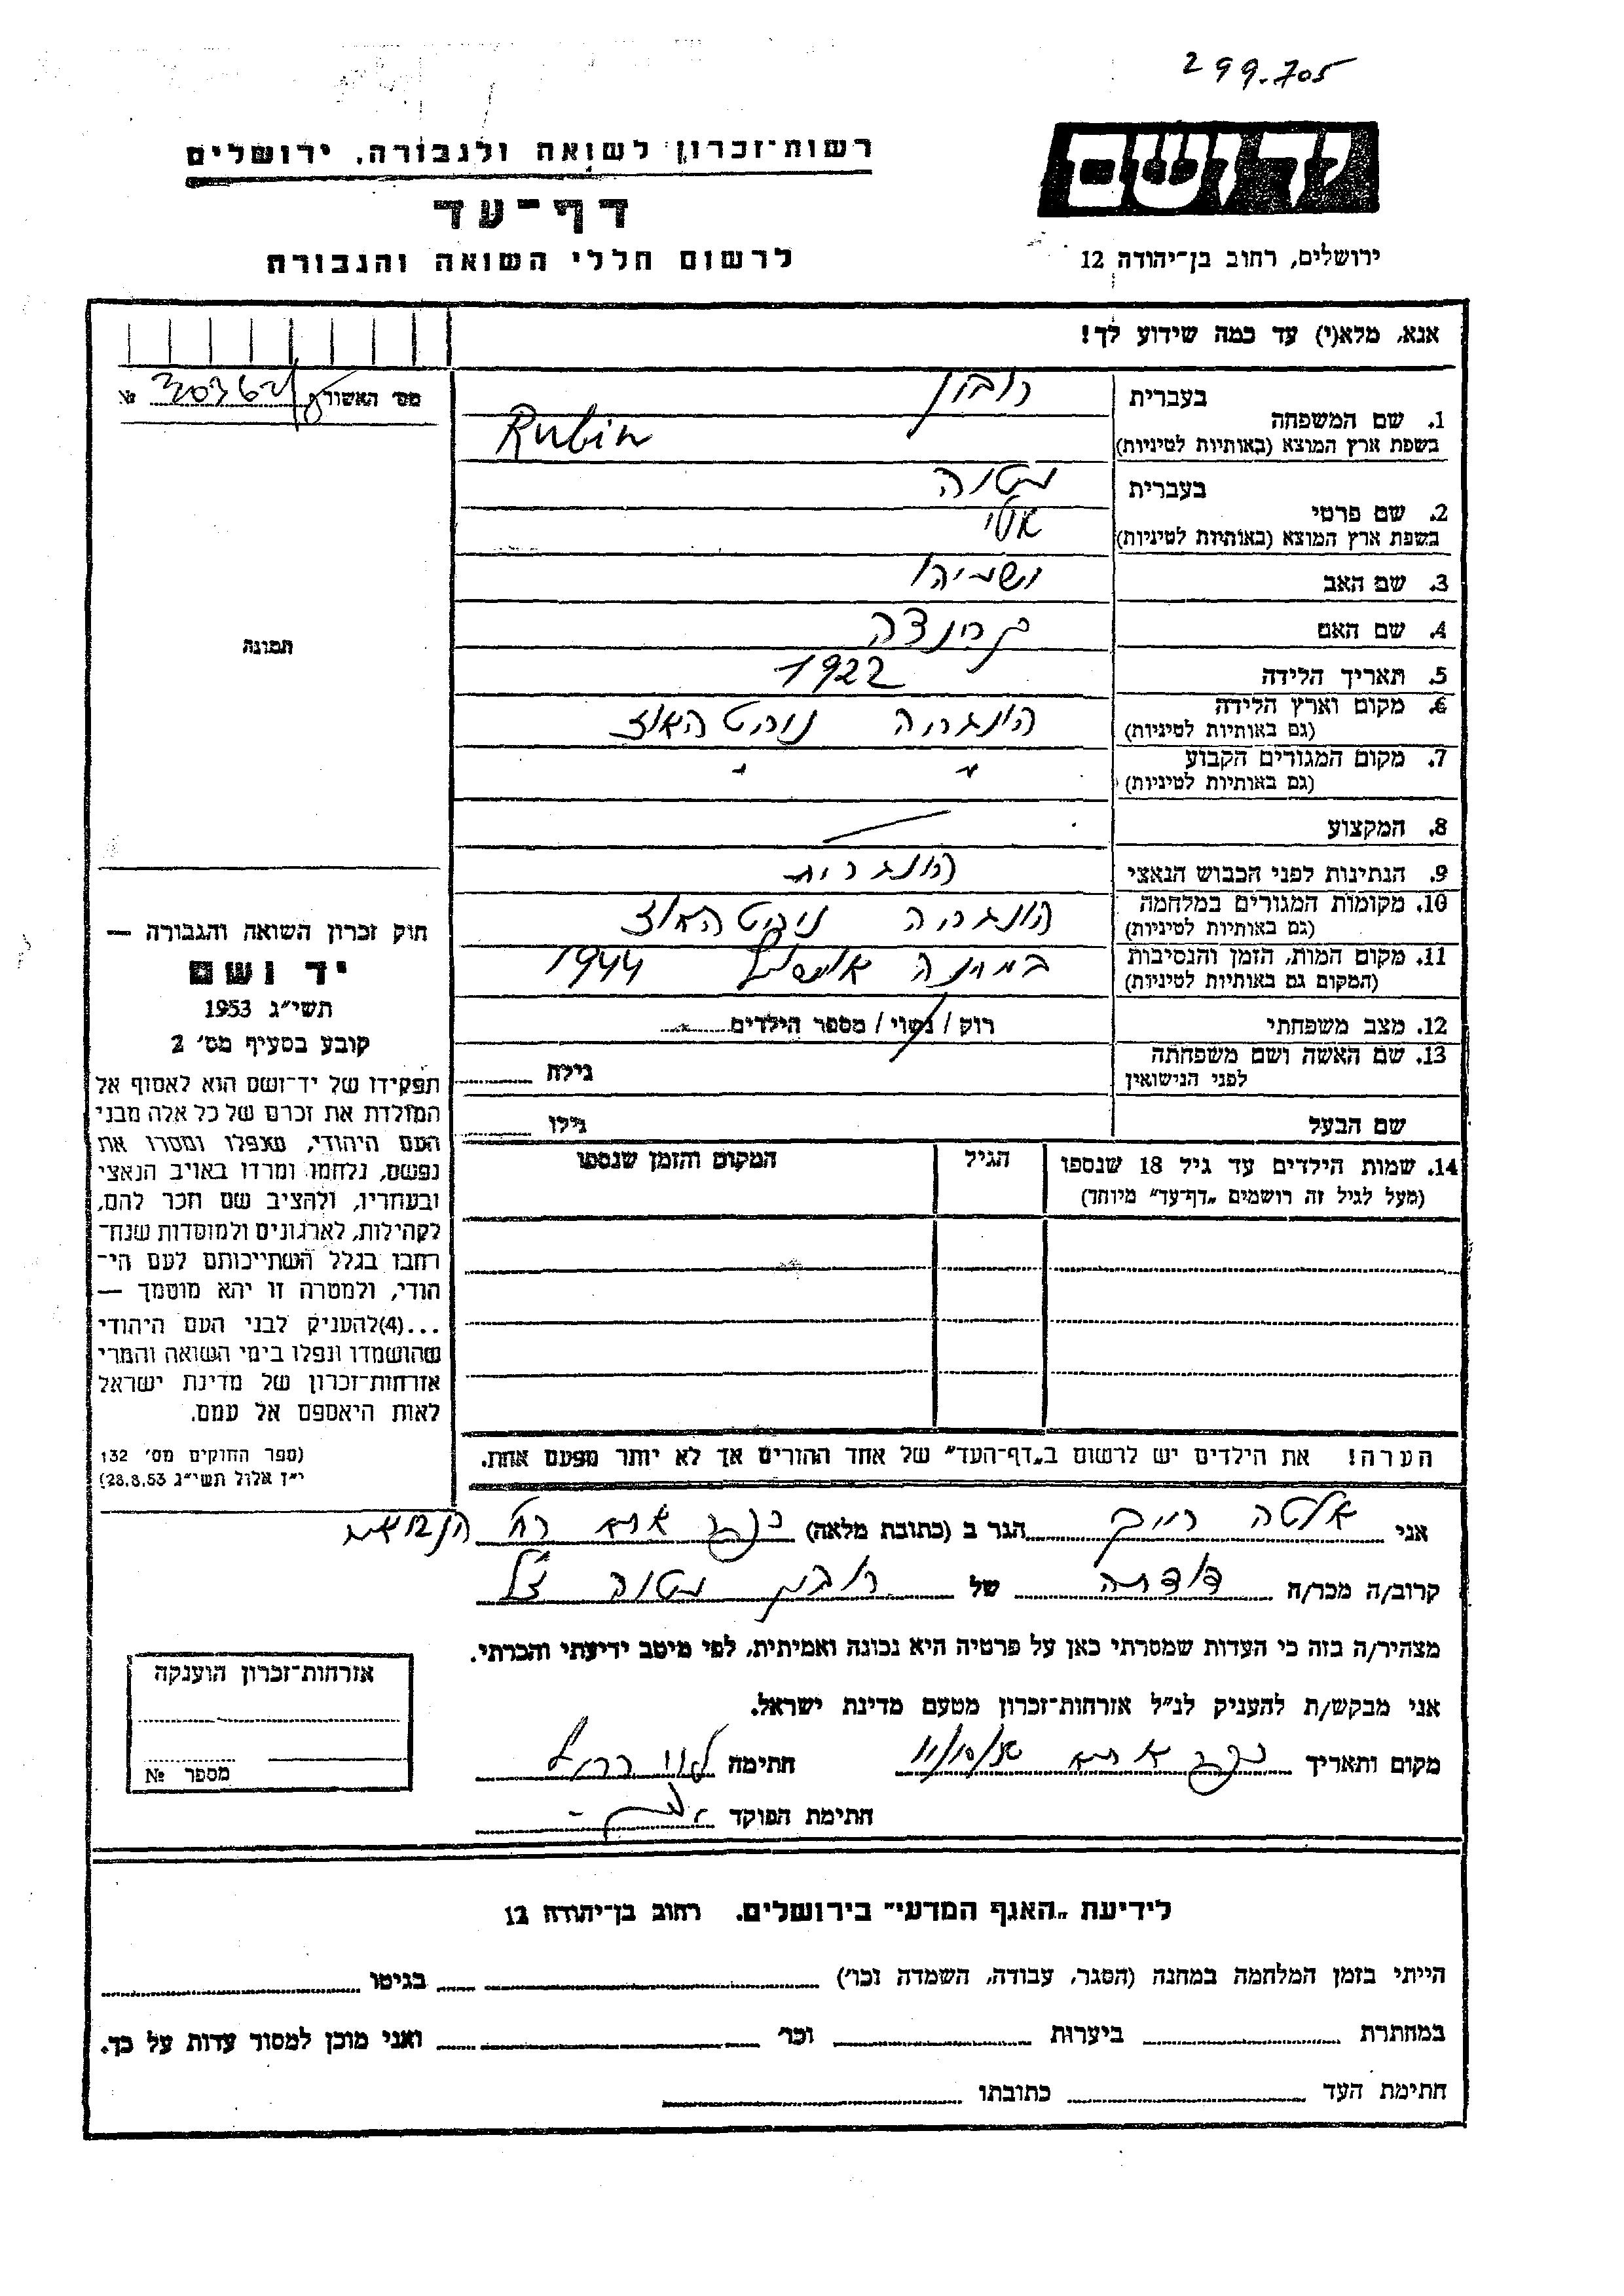 299.705
יד ושם
ירושלים, רחוב בן־יהודה 12
רשות־זכרון לשואה ולגבורה, ירושלים
דף־עד
לרשום חללי השואה והגבורה
אנא, מלא(י) עד כמה שידוע לך!
מס׳ האשור №
1. שם המשפחה
בעברית רובין
בשפת ארץ המוצא (באותיות לטיניות) Rubin
2. שם פרטי
בעברית
בשפת ארץ המוצא (באותיות לטיניות)
3. שם האב
4. שם האם
5. תאריך הלידה 1922
6. מקום וארץ הלידה הונגריה
(גם באותיות לטיניות)
7. מקום המגורים הקבוע
(גם באותיות לטיניות)
8. המקצוע
9. הנתינות לפני הכבוש הנאצי הונגרית
10. מקומות המגורים במלחמה הונגריה
(גם באותיות לטיניות)
11. מקום המות, הזמן והנסיבות 1944
(המקום גם באותיות לטיניות)
12. מצב משפחתי רוק / נשוי / מספר הילדים
13. שם האשה ושם משפחתה
לפני הנישואין
גילה
שם הבעל גילו
14. שמות הילדים עד גיל 18 שנספו הגיל המקום והזמן שנספו
(מעל לגיל זה רושמים „דף־עד״ מיוחד)
הערה! את הילדים יש לרשום ב„דף־העד״ של אחד ההורים אך לא יותר מפעם אחת.
תמונה
חוק זכרון השואה והגבורה —
יד ושם
תשי״ג 1953
קובע בסעיף מס׳ 2
תפקידו של יד־ושם הוא לאסוף אל
המולדת את זכרם של כל אלה מבני
העם היהודי, שנפלו ומסרו את
נפשם, נלחמו ומרדו באויב הנאצי
ובעוזריו, ולהציב שם וזכר להם,
לקהילות, לארגונים ולמוסדות שנח־
רבו בגלל השתייכותם לעם הי־
הודי, ולמטרה זו יהא מוסמך —
...(4)להעניק לבני העם היהודי
שהושמדו ונפלו בימי השואה והמרי
אזרחות־זכרון של מדינת ישראל
לאות היאספם אל עמם.
(ספר החוקים מס׳ 132
י״ז אלול תשי״ג 28.8.53)
אני אלטה הגר ב (כתובת מלאה)
קרוב/ה מכר/ה של רובין
מצהיר/ה בזה כי העדות שמסרתי כאן על פרטיה היא נכונה ואמיתית, לפי מיטב ידיעתי והכרתי.
אני מבקש/ת להעניק לנ״ל אזרחות־זכרון מטעם מדינת ישראל.
מקום ותאריך חתימה
חתימת הפוקד
אזרחות־זכרון הוענקה
מספר №
לידיעת „האגף המדעי״ בירושלים. רחוב בן־יהודה 12
הייתי בזמן המלחמה במחנה (הסגר, עבודה, השמדה וכו׳) בגיטו
במחתרת ביערות וכו׳ ואני מוכן למסור עדות על כך.
חתימת העד כתובתו